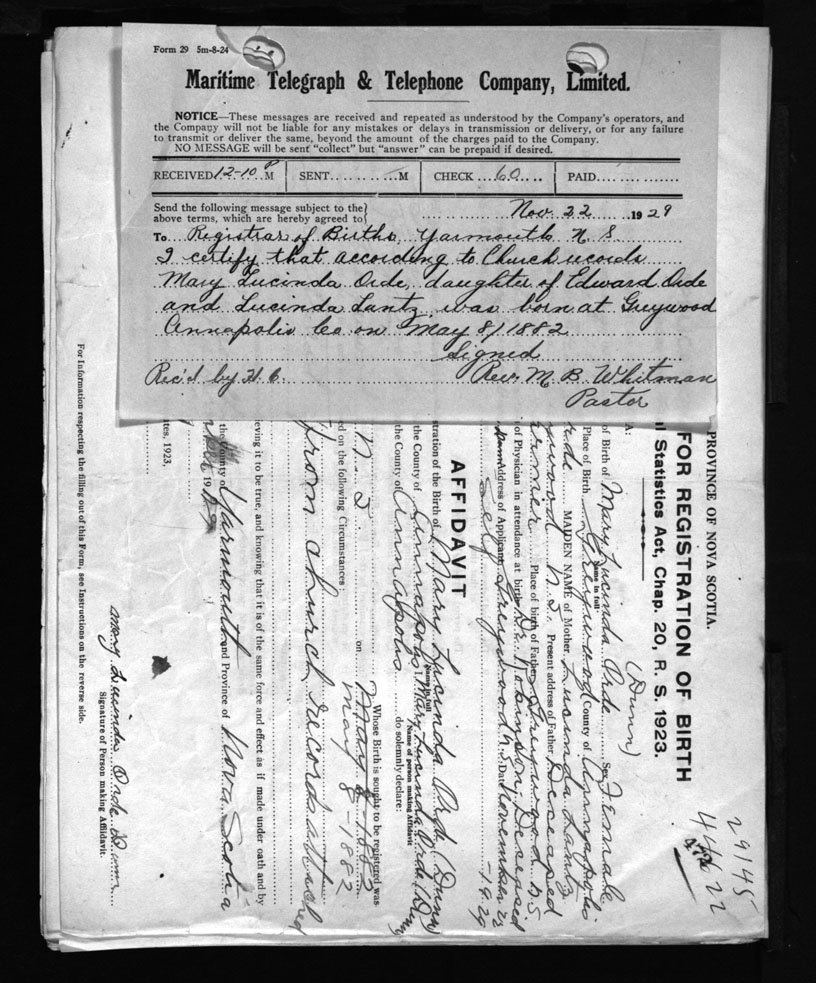 Form 29 5m-8-24
Maritime Telegraph & Telephone Company, Limited.
NOTICE—These messages are received and repeated as understood by the Company's operators, and
the Company will not be liable for any mistakes or delays in transmission or delivery, or for any failure
to transmit or deliver the same, beyond the amount of the charges paid to the Company.
NO MESSAGE will be sent "collect" but "answer" can be prepaid if desired.
RECEIVED 12-10 P M SENT M CHECK 60 PAID
Send the following message subject to the
above terms, which are hereby agreed to
Nov. 22 1929
To Registrar of Births, Yarmouth N. S
I certify that according to Church records
Mary Lucinda Orde, daughter of Edward Orde
and Lucinda Lantz, was born at Greywood
Annapolis Co on May 8/1882
Signed
Rec'd by H. C. Rev. M. B. Whitman
Pastor
29145
44622
PROVINCE OF NOVA SCOTIA.
FOR REGISTRATION OF BIRTH
l Statistics Act, Chap. 20, R. S. 1923.
(Dunn)
of Birth Mary Lucinda Orde Sex Female
Name in full
Place of Birth Greywood County of Annapolis
rde MAIDEN NAME of Mother Lucinda Lantz
ywood N. S. Present address of Father Deceased
armer Place of birth of Father Greywood N.S.
of Physician in attendance at birth Dr. Robinson, Deceased
Address of Applicant Greywood N.S. Date November 23
Self -1929
AFFIDAVIT
tration of the Birth of Mary Lucinda Orde (Dunn)
Name in full
the County of Annapolis Mary Lucinda Orde (Dunn)
Name of person making Affidavit
the County of Annapolis do solemnly declare:
Whose Birth is sought to be registered was
N. S. on May 8-1882
May 8-1882
ed on the following Circumstances
from church records attached
ieving it to be true, and knowing that it is of the same force and effect as if made under oath and by
the County of Yarmouth and Province of Nova Scotia
19 29
tes, 1923,
Mary Lucinda Orde Dunn
Signature of Person making Affidavit.
For Information respecting the filling out of this Form, see Instructions on the reverse side.